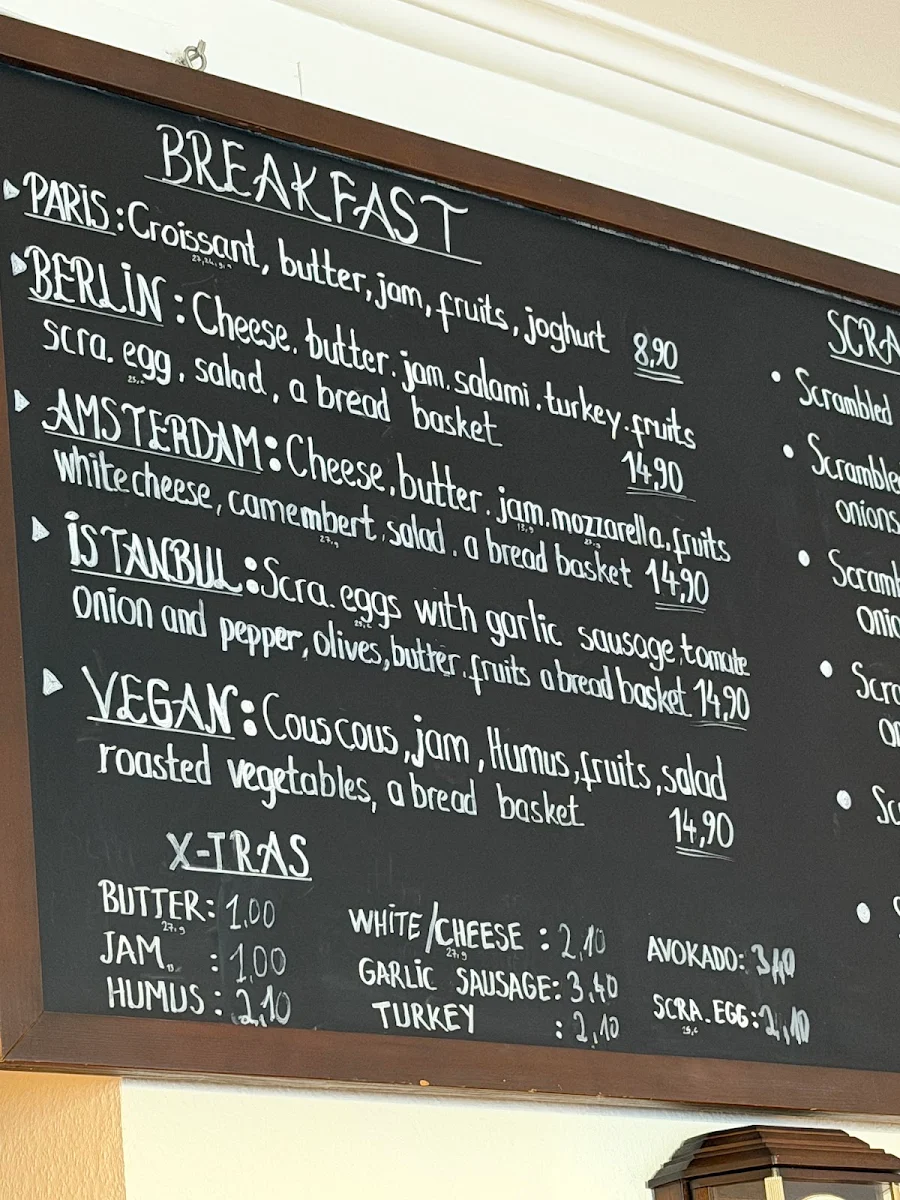 BREAKFAST
PARIS: Croissant, butter, jam, fruits, joghurt 8,90
BERLIN: Cheese. butter. jam. salami. turkey. fruits
scra. egg, salad, a bread basket 14,90
AMSTERDAM: Cheese. butter. jam. mozzarella, fruits
white cheese, camembert, salad. a bread basket 14,90
İSTANBUL: Scra. eggs with garlic sausage, tomate
onion and pepper, olives, butter. fruits a bread basket 14,90
VEGAN: Couscous, jam, Humus, fruits, salad
roasted vegetables, a bread basket 14,90
X-TRAS
BUTTER: 1,00
JAM : 1,00
HUMUS: 2,10
WHITE/CHEESE : 2,10
GARLIC SAUSAGE: 3,40
TURKEY : 2,10
AVOKADO:
SCRA. EGG: 2,10
SCRA
Scrambled
Scramble
onions
Scramb
onio
Scra
on
Sc